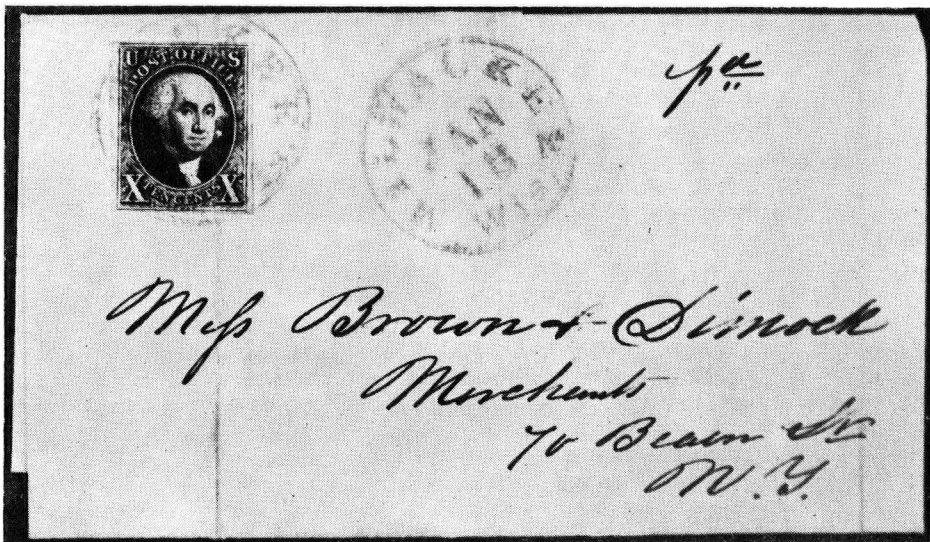 U S
POST OFFICE
X TEN CENTS X
MILWAUKEE
WIS.
JAN
pd
Mess Brown & Dimock
Merchants
70 Beaver St
N.Y.